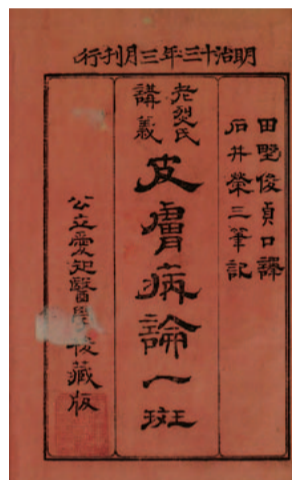 明治十三年三月刊行
田野俊貞口譯
石井榮三筆記
老烈氏
講義
皮膚病論一斑
公立愛知醫學校藏版